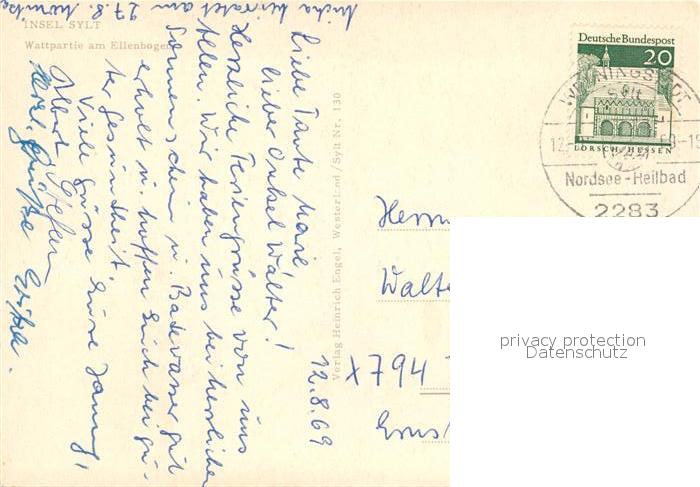 INSEL SYLT
Wattpartie am Ellenbogen
12.8.69
Liebe Tante Marie
lieber Onkel Walter!
Herzliche Feriengrüsse von uns
allen. Wir haben uns bei herrlichem
Sonnenschein u. Badewasser gut
erholt u. hoffen Euch bei gu-
ter Gesundheit.
Viele Grüsse Eure
Albert Stefan
Herzl. Grüße Erika.
heiratet am 27.8.
Verlag Heinrich Engel, Westerland/Sylt Nr. 130
Deutsche Bundespost
20
LORSCH/HESSEN
WENNINGSTEDT
Sylt
Nordsee-Heilbad
2283
Herrn
Walte
X794
Erns
privacy protection
Datenschutz